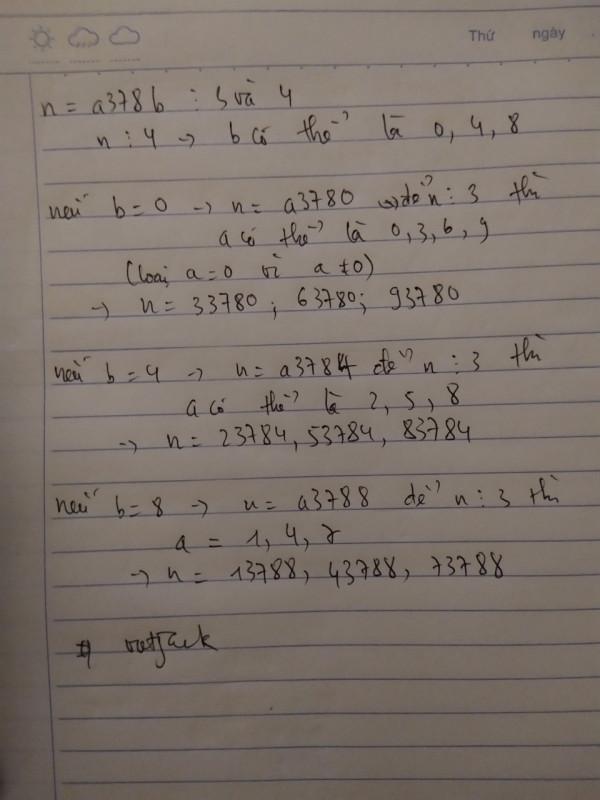 Thứ ngày
n = a378b ⋮ 3 và 4
n ⋮ 4 → b có thể là 0, 4, 8
nếu b = 0 → n = a3780 để n ⋮ 3 thì
a có thể là 0, 3, 6, 9
(loại a = 0 vì a ≠ 0)
→ n = 33780 ; 63780; 93780
nếu b = 4 → n = a3784 để n ⋮ 3 thì
a có thể là 2, 5, 8
→ n = 23784, 53784, 83784
nếu b = 8 → n = a3788 để n ⋮ 3 thì
a = 1, 4, 7
→ n = 13788, 43788, 73788